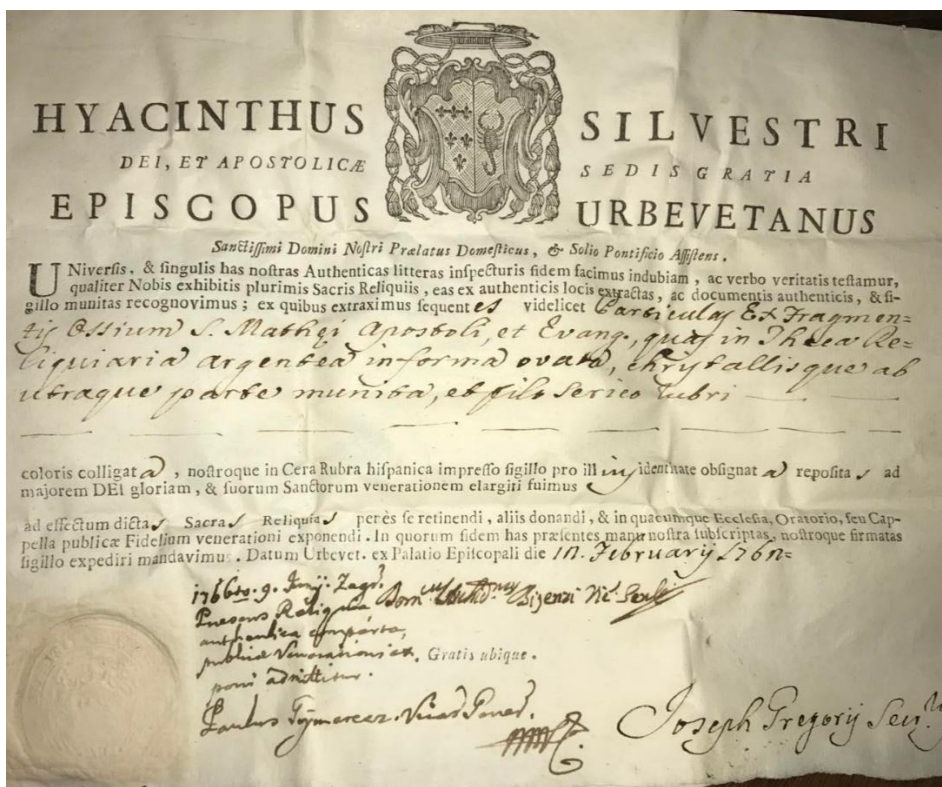 HYACINTHUS SILVESTRI
DEI, ET APOSTOLICÆ SEDIS GRATIA
EPISCOPUS URBEVETANUS
Sanctissimi Domini Nostri Prælatus Domesticus, & Solio Pontificio Assistens.
UNiversis, & singulis has nostras Authenticas litteras inspecturis fidem facimus indubiam, ac verbo veritatis testamur,
qualiter Nobis exhibitis plurimis Sacris Reliquiis, eas ex authenticis locis extractas, ac documentis authenticis, & si-
gillo munitas recognovimus; ex quibus extraximus sequentes videlicet Particulas Ex Fragmen=
tis Ossium S. Matthęi Apostoli, et Evang., quas in Theca Re=
liquiaria argentea in forma ovata, chrytallisque ab
utraque parte munita, et filo serico rubri
coloris colligata, nostroque in Cera Rubra hispanica impresso sigillo pro ill identitate obsignata repositas ad
majorem DEI gloriam, & suorum Sanctorum venerationem elargiti fuimus
ad effectum dictas Sacras Reliquias penès se retinendi, aliis donandi, & in quacumque Ecclesia, Oratorio, seu Cap-
pella publicæ Fidelium venerationi exponendi. In quorum fidem has præsentes manu nostra subscriptas, nostroque firmatas
sigillo expediri mandavimus. Datum Urbevet. ex Palatio Episcopali die February
1766to 9. Junij. Zagr.
Praesens Reliquia
authentica comperta,
publicae Venerationi ex
poni admittitur. Gratis ubique.
Paulus Vicar Gener.
Joseph Gregorij